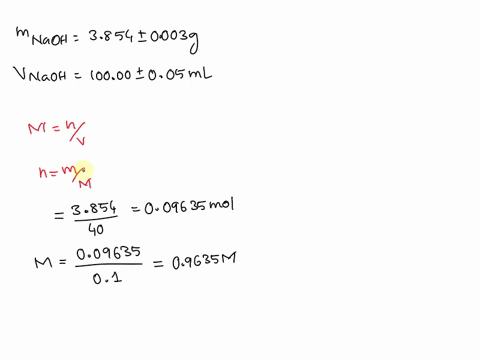 m NaOH = 3.854 ± 0.003g
V NaOH = 100.00 ± 0.05 mL
M = n/V
n = m/M
= 3.854/40 = 0.09635 mol
M = 0.09635/0.1 = 0.9635 M